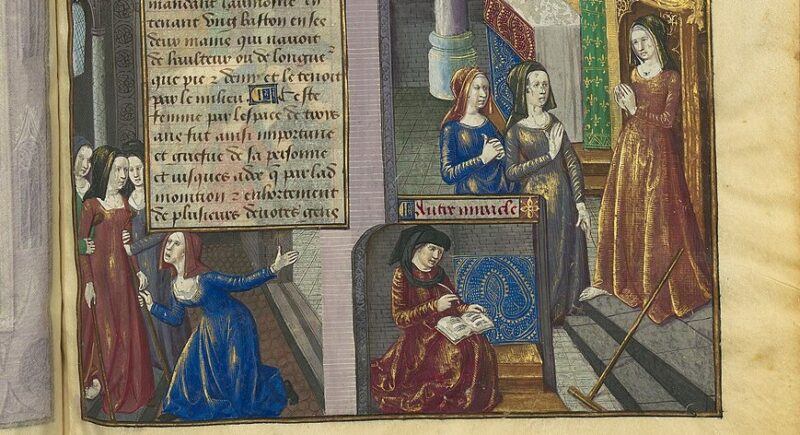 mandant laumosne en
tenant ung baston en ses
deux mains qui navoit
de haulteur ou de longue'
que pie z demy et le tenoit
par le milieu Ceste
femme par lespace de trois
ans fut ainsi impotente
et griefue de sa personne
et iusques a de q̃ par lad
monition z enhortement
de plusieurs deuotes gens
Autre miracle